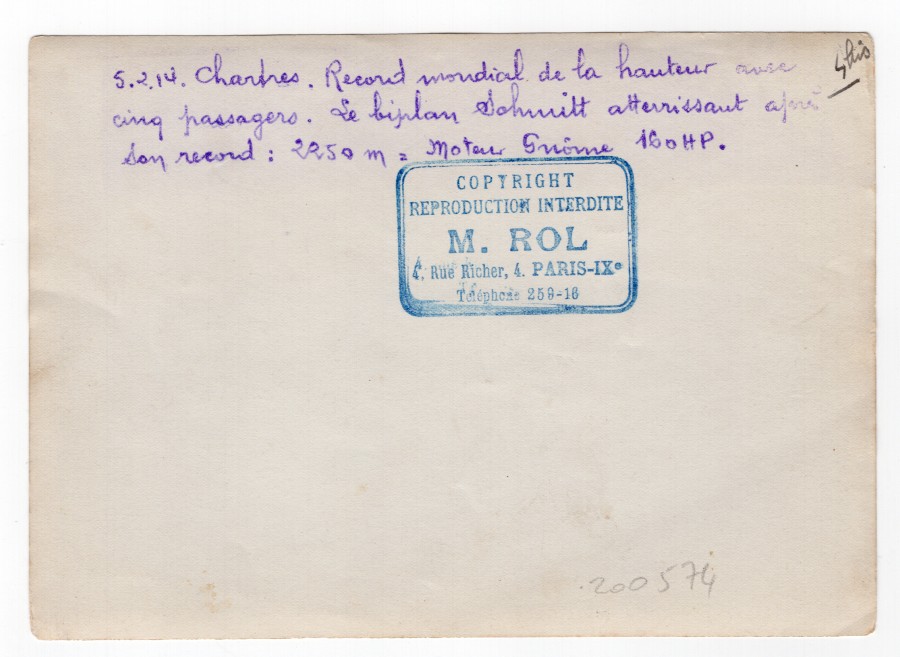 4 bis
5.2.14. Chartres. Record mondial de la hauteur avec
cinq passagers. Le biplan Schmitt atterrissant après
son record : 2250 m = Moteur Gnôme 160HP.
COPYRIGHT
REPRODUCTION INTERDITE
M. ROL
4, Rue Richer, 4. PARIS-IXe
Téléphone 259-16
200574